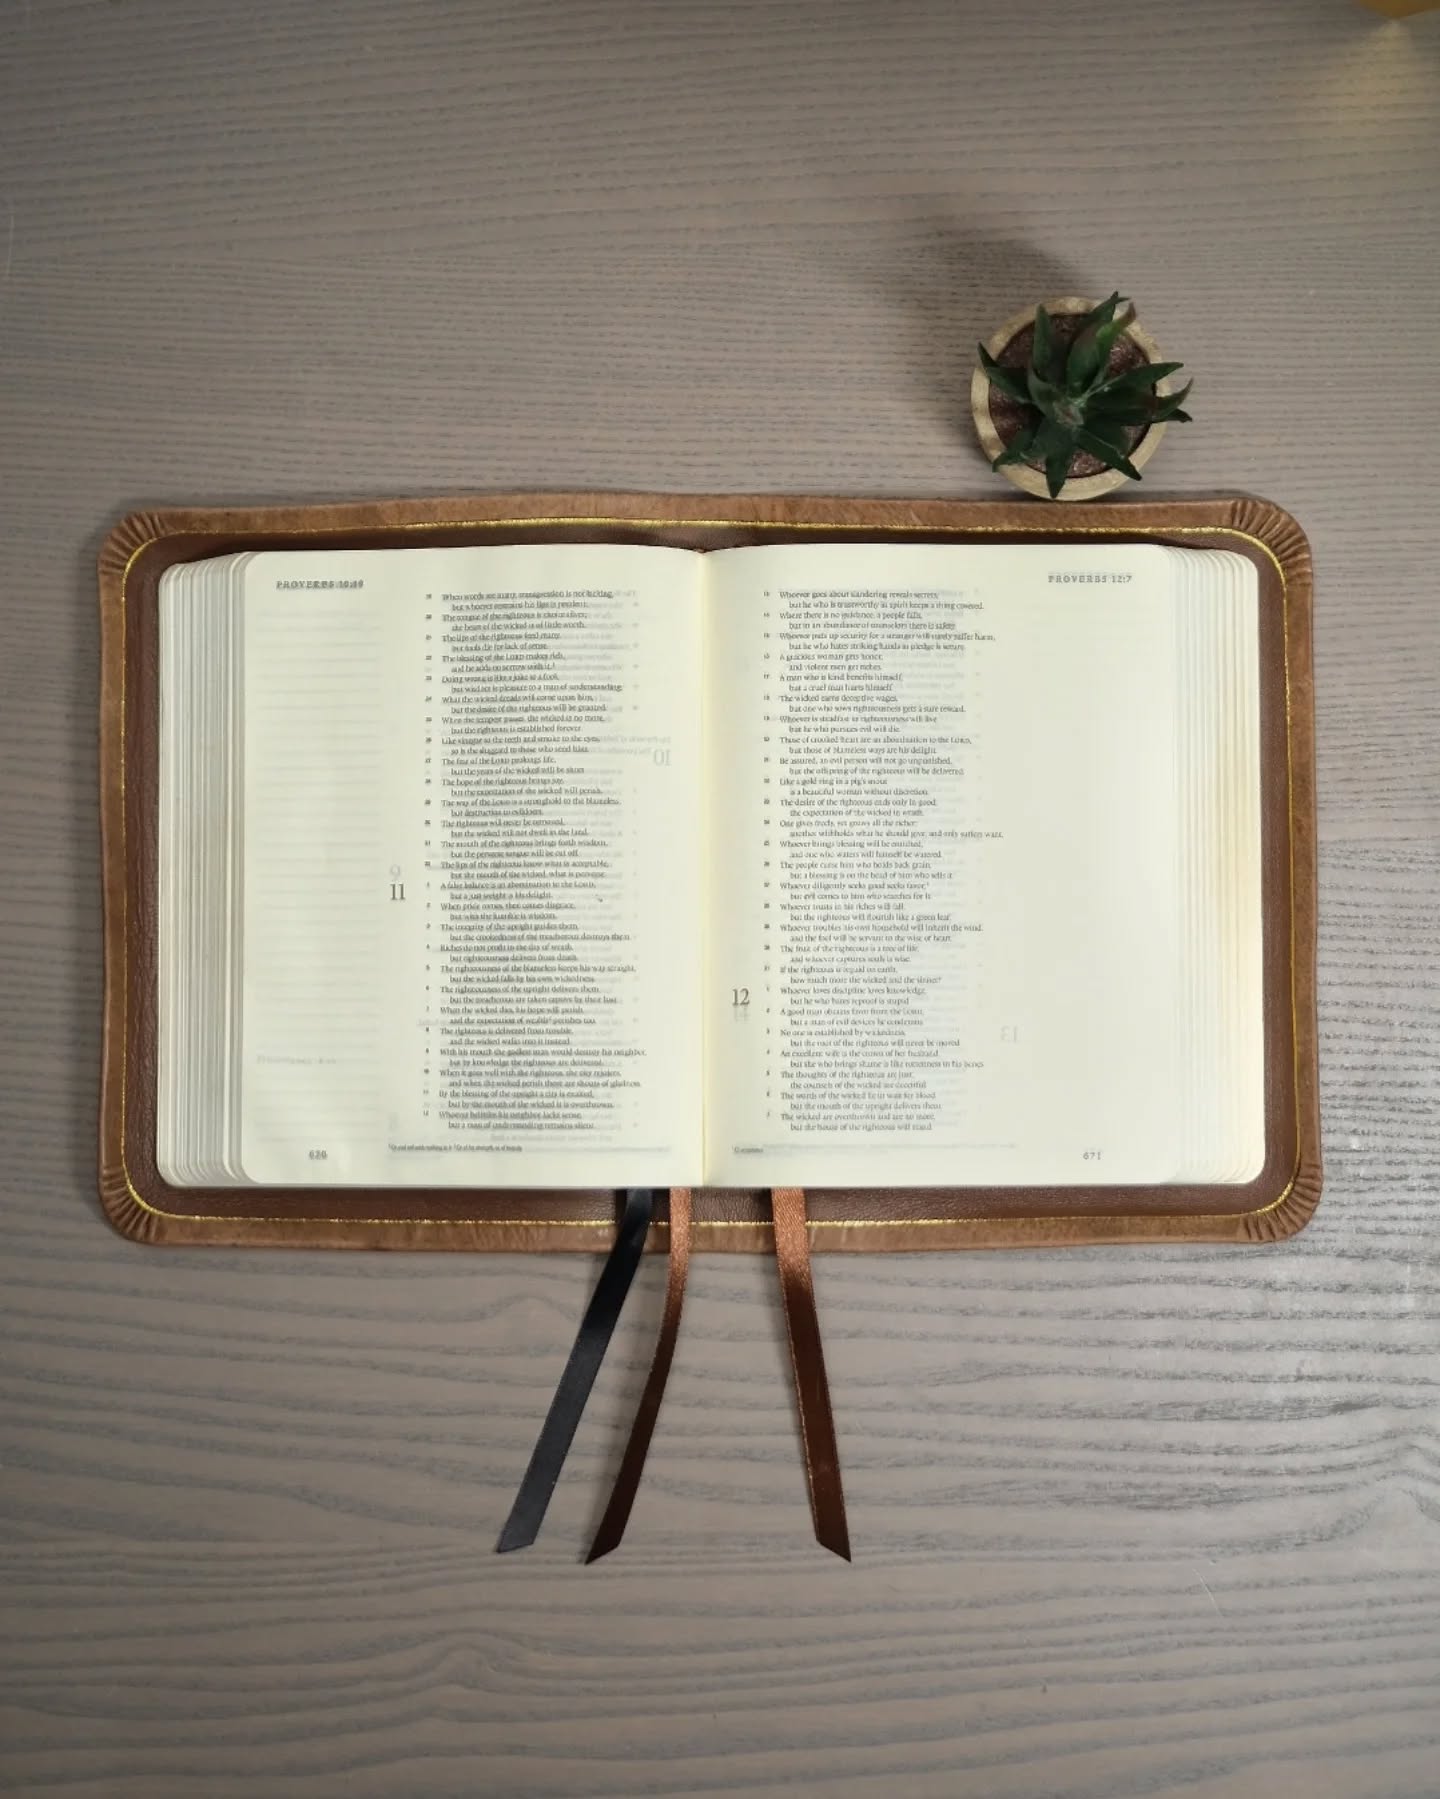 PROVERBS 10:19
19 When words are many, transgression is not lacking,
but whoever restrains his lips is prudent.
20 The tongue of the righteous is choice silver;
the heart of the wicked is of little worth.
21 The lips of the righteous feed many,
but fools die for lack of sense.
22 The blessing of the LORD makes rich,
and he adds no sorrow with it.
23 Doing wrong is like a joke to a fool,
but wisdom is pleasure to a man of understanding.
24 What the wicked dreads will come upon him,
but the desire of the righteous will be granted.
25 When the tempest passes, the wicked is no more,
but the righteous is established forever.
26 Like vinegar to the teeth and smoke to the eyes,
so is the sluggard to those who send him.
27 The fear of the LORD prolongs life,
but the years of the wicked will be short.
28 The hope of the righteous brings joy,
but the expectation of the wicked will perish.
29 The way of the LORD is a stronghold to the blameless,
but destruction to evildoers.
30 The righteous will never be removed,
but the wicked will not dwell in the land.
31 The mouth of the righteous brings forth wisdom,
but the perverse tongue will be cut off.
32 The lips of the righteous know what is acceptable,
but the mouth of the wicked, what is perverse.
11
1 A false balance is an abomination to the LORD,
but a just weight is his delight.
2 When pride comes, then comes disgrace,
but with the humble is wisdom.
3 The integrity of the upright guides them,
but the crookedness of the treacherous destroys them.
4 Riches do not profit in the day of wrath,
but righteousness delivers from death.
5 The righteousness of the blameless keeps his way straight,
but the wicked falls by his own wickedness.
6 The righteousness of the upright delivers them,
but the treacherous are taken captive by their lust.
7 When the wicked dies, his hope will perish,
and the expectation of wealth perishes too.
8 The righteous is delivered from trouble,
and the wicked walks into it instead.
9 With his mouth the godless man would destroy his neighbor,
but by knowledge the righteous are delivered.
10 When it goes well with the righteous, the city rejoices,
and when the wicked perish there are shouts of gladness.
11 By the blessing of the upright a city is exalted,
but by the mouth of the wicked it is overthrown.
12 Whoever belittles his neighbor lacks sense,
but a man of understanding remains silent.
PROVERBS 12:7
13 Whoever goes about slandering reveals secrets,
but he who is trustworthy in spirit keeps a thing covered.
14 Where there is no guidance, a people falls,
but in an abundance of counselors there is safety.
15 Whoever puts up security for a stranger will surely suffer harm,
but he who hates striking hands in pledge is secure.
16 A gracious woman gets honor,
and violent men get riches.
17 A man who is kind benefits himself,
but a cruel man hurts himself.
18 The wicked earns deceptive wages,
but one who sows righteousness gets a sure reward.
19 Whoever is steadfast in righteousness will live,
but he who pursues evil will die.
20 Those of crooked heart are an abomination to the LORD,
but those of blameless ways are his delight.
21 Be assured, an evil person will not go unpunished,
but the offspring of the righteous will be delivered.
22 Like a gold ring in a pig's snout
is a beautiful woman without discretion.
23 The desire of the righteous ends only in good,
the expectation of the wicked in wrath.
24 One gives freely, yet grows all the richer;
another withholds what he should give, and only suffers want.
25 Whoever brings blessing will be enriched,
and one who waters will himself be watered.
26 The people curse him who holds back grain,
but a blessing is on the head of him who sells it.
27 Whoever diligently seeks good seeks favor,
but evil comes to him who searches for it.
28 Whoever trusts in his riches will fall,
but the righteous will flourish like a green leaf.
29 Whoever troubles his own household will inherit the wind,
and the fool will be servant to the wise of heart.
30 The fruit of the righteous is a tree of life,
and whoever captures souls is wise.
31 If the righteous is repaid on earth,
how much more the wicked and the sinner!
12
1 Whoever loves discipline loves knowledge,
but he who hates reproof is stupid.
2 A good man obtains favor from the LORD,
but a man of evil devices he condemns.
3 No one is established by wickedness,
but the root of the righteous will never be moved.
4 An excellent wife is the crown of her husband,
but she who brings shame is like rottenness in his bones.
5 The thoughts of the righteous are just;
the counsels of the wicked are deceitful.
6 The words of the wicked lie in wait for blood,
but the mouth of the upright delivers them.
7 The wicked are overthrown and are no more,
but the house of the righteous will stand.
671